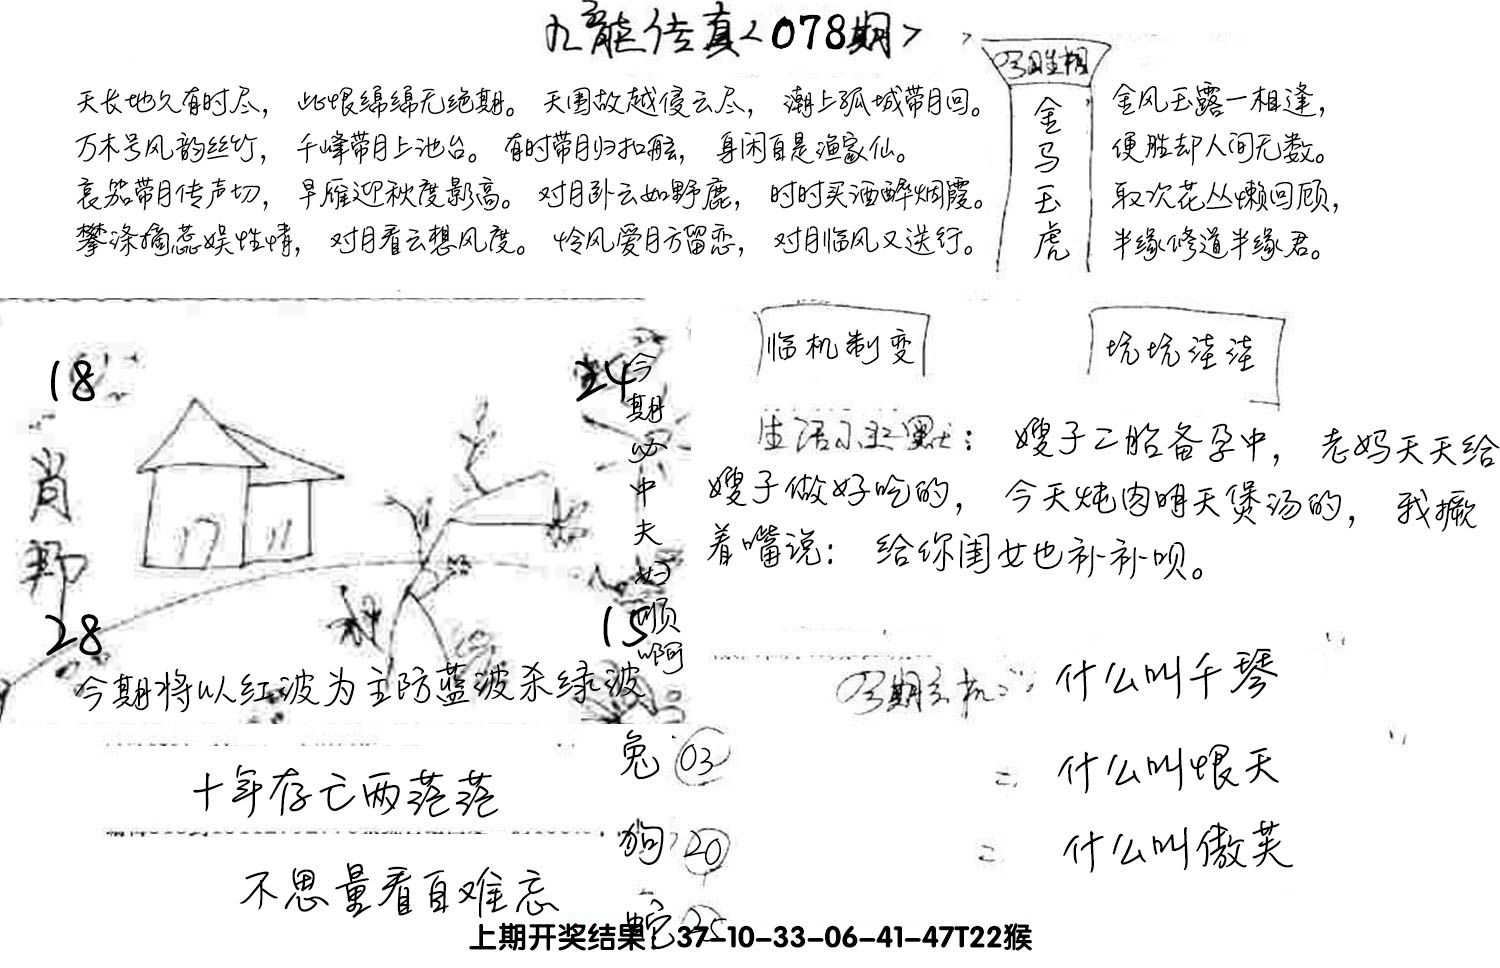 九龙传真<078期>
今期生相
金马玉虎
天长地久有时尽，此恨绵绵无绝期。天围故越侵云尽，潮上孤城带月回。
万木号风韵丝竹，千峰带月上池台。有时带月归扣舷，身闲自是渔家仙。
哀笳带月传声切，早雁迎秋度影高。对月卧云如野鹿，时时买酒醉烟霞。
攀涤摘蕊娱性情，对月看云想风度。怜风爱月方留恋，对月临风又送行。
金风玉露一相逢，
便胜却人间无数。
取次花丛懒回顾，
半缘修道半缘君。
18
24
肖
28
15
今期必中夫妇顺啊
今期将以红波为主防蓝波杀绿波
临机制变
坑坑洼洼
生活小幽默：嫂子二胎备孕中，老妈天天给
嫂子做好吃的，今天炖肉明天煲汤的，我撅
着嘴说：给你闺女也补补呗。
今期玄机：什么叫千琴
二 什么叫恨天
二 什么叫傲芙
十年存亡两茫茫
不思量看自难忘
兔 03
狗 20
蛇 25
上期开奖结果：37-10-33-06-41-47T22猴